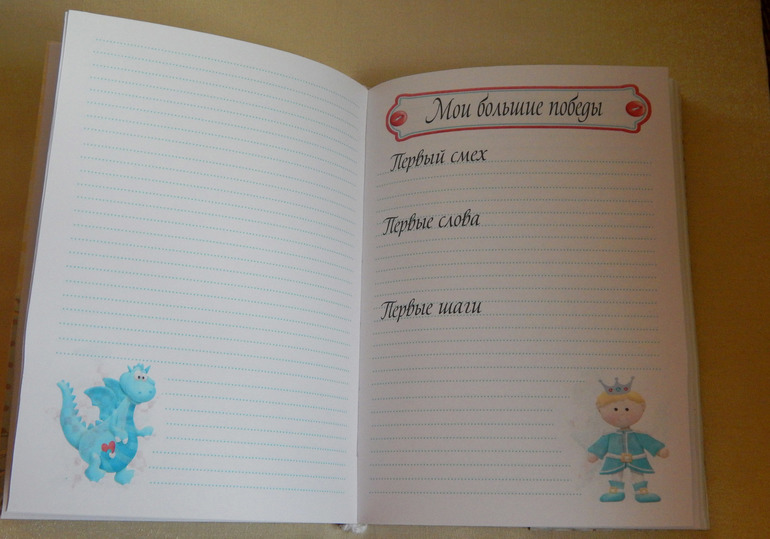 Мои большие победы
Первый смех
Первые слова
Первые шаги